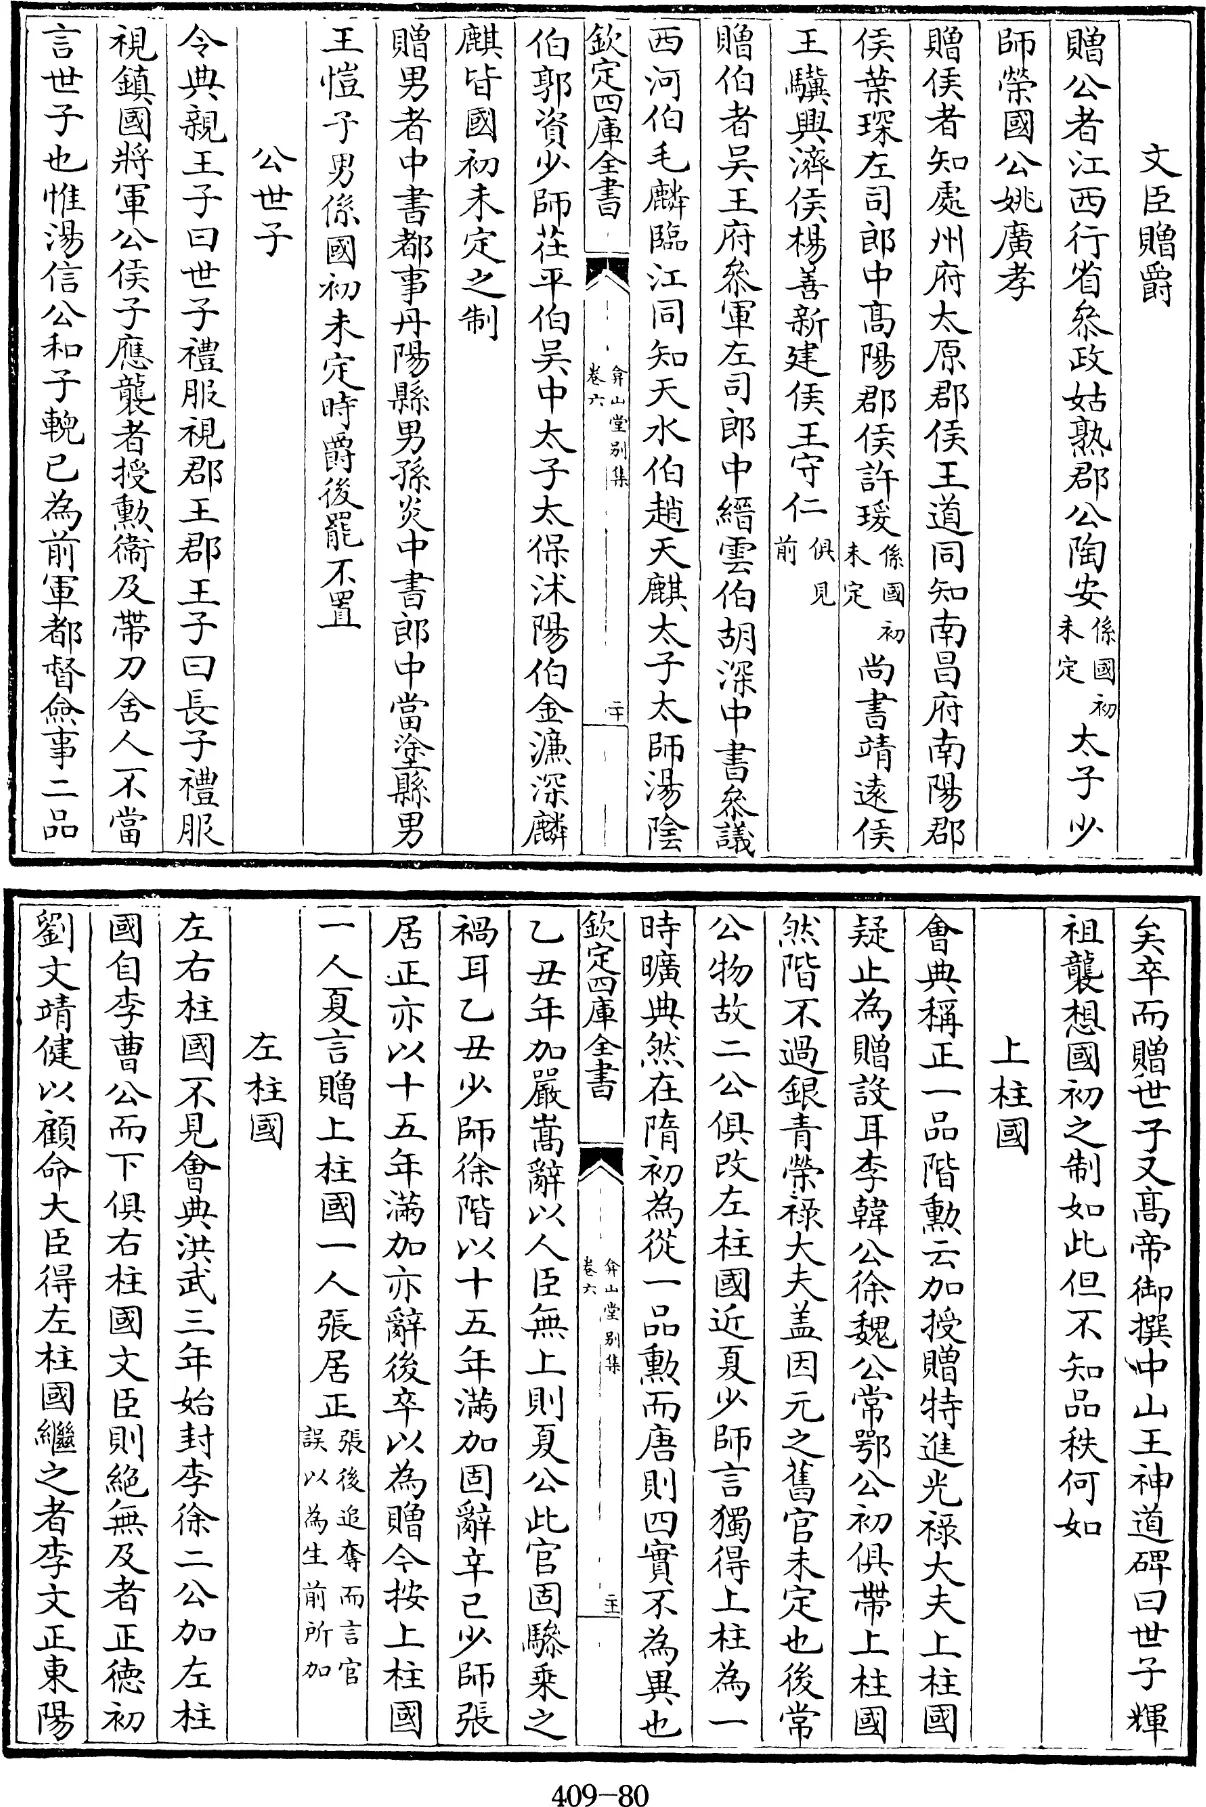 文臣贈爵
贈公者江西行省叅政姑熟郡公陶安係國初未定太子少
師榮國公姚廣孝
贈侯者知處州府太原郡侯王道同知南昌府南陽郡
侯葉琛左司郎中髙陽郡侯許瑗係國初未定尚書靖逺侯
王驥興濟侯楊善新建侯王守仁俱見前
贈伯者吴王府叅軍左司郎中縉雲伯胡深中書叅議
西河伯毛麟臨江同知天水伯趙天麒太子太師湯隂
欽定四庫全書
弇山堂别集
卷六
二十
伯郭資少師茌平伯吴中太子太保沭陽伯金濂深麟
麒皆國初未定之制
贈男者中書都事丹陽縣男孫炎中書郎中當塗縣男
王愷子男係國初未定時爵後罷不置
公世子
令典親王子曰世子禮服視郡王郡王子曰長子禮服
視鎮國將軍公侯子應襲者授勲衞及帶刀舍人不當
言世子也惟湯信公和子軏已為前軍都督僉事二品
矣卒而贈世子又髙帝御撰中山王神道碑曰世子輝
祖襲想國初之制如此但不知品秩何如
上柱國
會典稱正一品階勲云加授贈特進光禄大夫上柱國
疑止為贈設耳李韓公徐魏公常鄂公初俱帶上柱國
然階不過銀青榮禄大夫盖因元之舊官未定也後常
公物故二公俱改左柱國近夏少師言獨得上柱為一
時曠典然在隋初為從一品勲而唐則四實不為異也
欽定四庫全書
弇山堂别集
卷六
二十一
乙丑年加嚴嵩辭以人臣無上則夏公此官固驂乘之
禍耳乙丑少師徐階以十五年滿加固辭辛巳少師張
居正亦以十五年滿加亦辭後卒以為贈今按上柱國
一人夏言贈上柱國一人張居正張後追奪而言官誤以為生前所加
左柱國
左右柱國不見會典洪武三年始封李徐二公加左柱
國自李曹公而下俱右柱國文臣則絶無及者正徳初
劉文靖健以顧命大臣得左柱國繼之者李文正東陽
409-80